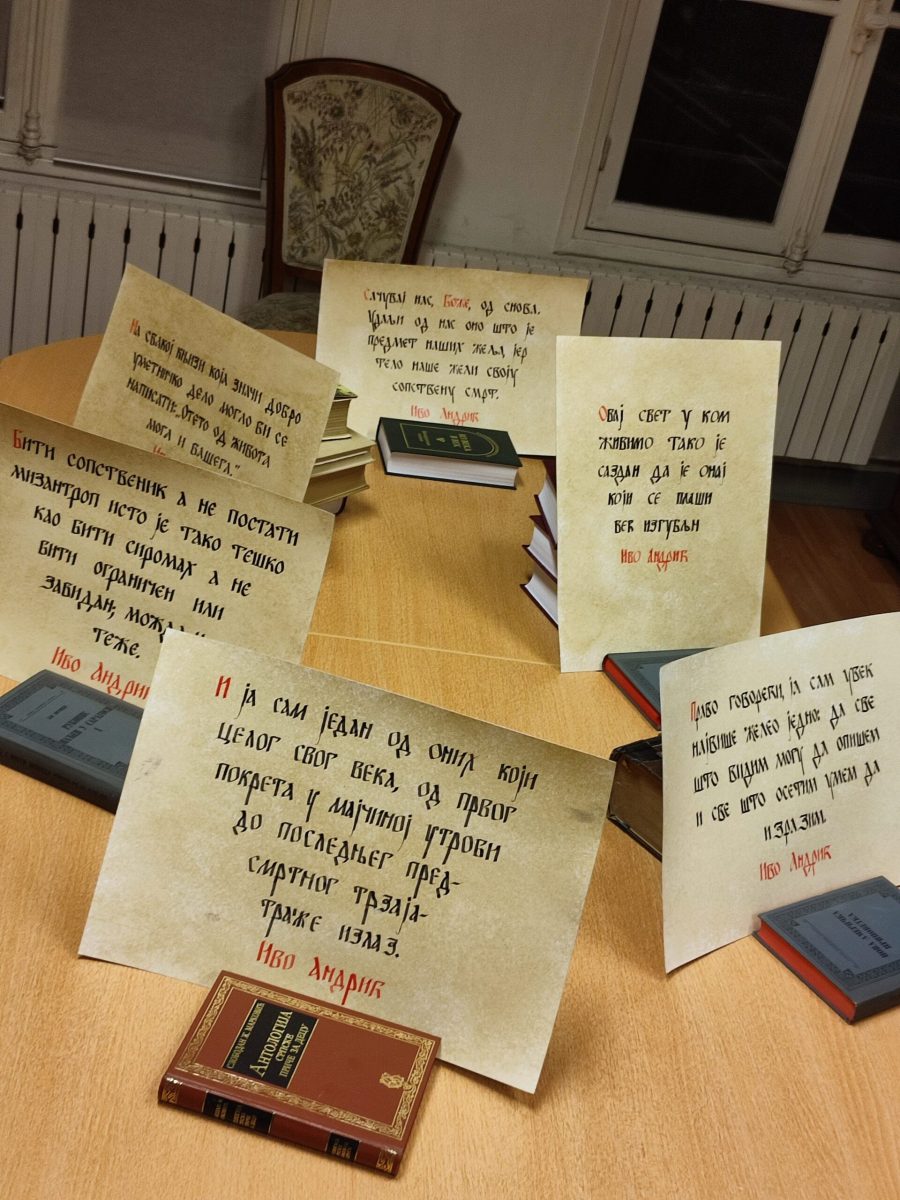 Сачувај нас, Боже, од снова.
Удаљи од нас оно што је
предмет наших жеља, јер
тело наше жели своју
сопствену смрт.
Иво Андрић
На свакој књизи која значи добро
уметничко дело могло би се
написати: „Отето од живота
мога и вашега.“
Овај свет у ком
живимо тако је
саздан да је онај
који се плаши
век изгубљн
Иво Андрић
Бити сопственик а не постати
мизантроп исто је тако тешко
као бити сиромах а не
бити ограничен или
завидан; можда
теже.
Иво Андрић
Право говорећи, ја сам увек
највише желео једно: да све
што видим могу да опишем
и све што осетим умем да
изразим.
Иво Андрић
И ја сам један од оних који
целог свог века, од првог
покрета у мајчиној утроби
до последњег пред-
смртног трзаја-
траже излаз.
Иво Андрић
НОВА АМЕРИЧКА
ПРИПОВЕТКА
СЛОБОДАН Ж. МАРКОВИЋ
АНТОЛОГИЈА
СРПСКЕ
ПРИЧЕ ЗА ДЕЦУ